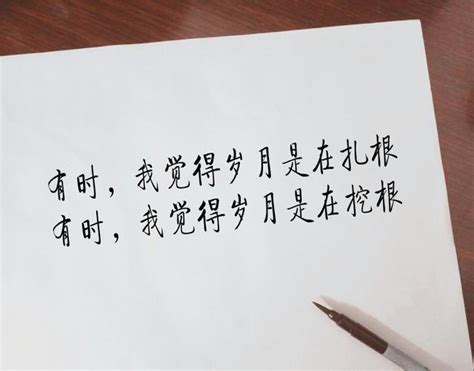 有时，我觉得岁月是在扎根
有时，我觉得岁月是在挖根